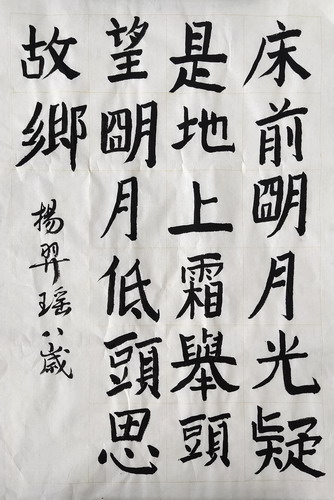 床前明月光疑
是地上霜舉頭
望明月低頭思
故鄉
揚羿瑶八歲